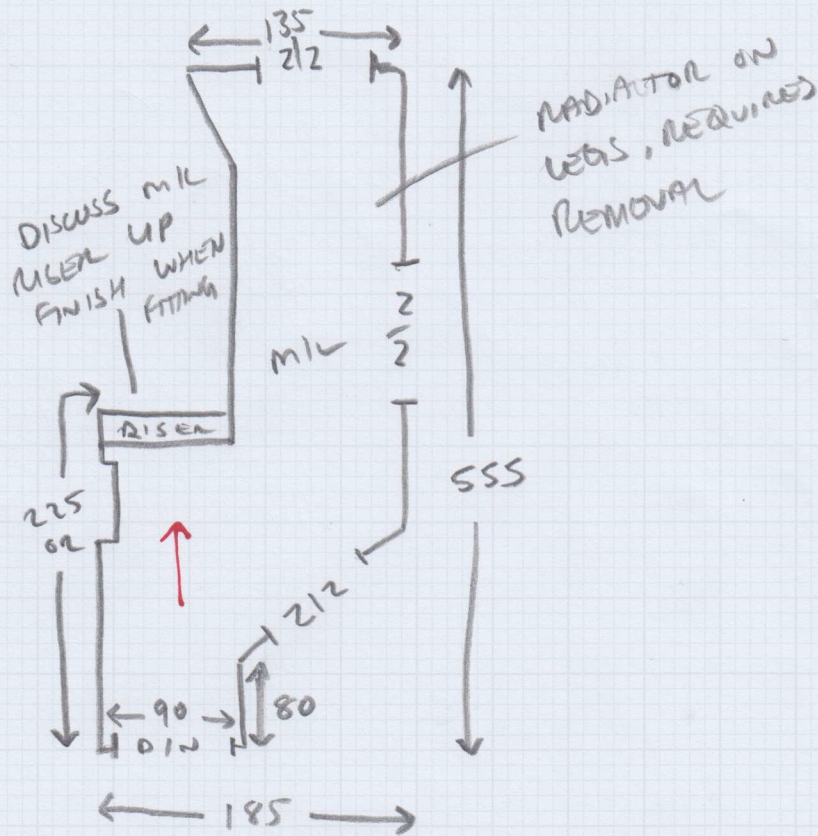 135
2/2
RADIATOR ON
LEGS, REQUIRED
REMOVAL
DISCUSS M/L
RISER UP
FINISH WHEN
FITTING
M/L
2/2
RISER
555
225
OR
2/2
90
80
D/N
185